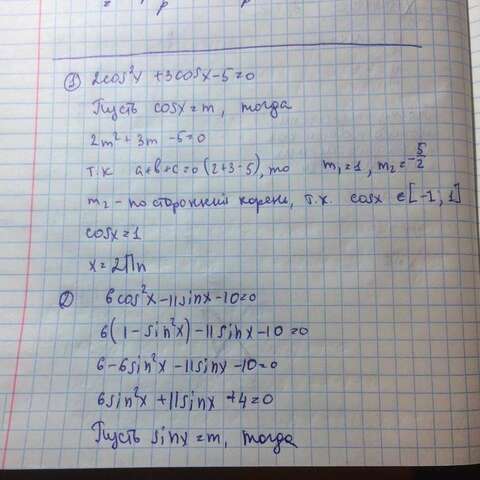 ① 2cos²x + 3cosx - 5 = 0
Пусть cosx = m, тогда
2m² + 3m - 5 = 0
т.к a+b+c=0 (2+3-5), то m₁=1, m₂=-5/2
m₂ - посторонний корень, т.к. cosx ∈ [-1; 1]
cosx = 1
x = 2Пn
② 6cos²x - 11sinx - 10 = 0
6(1 - sin²x) - 11sinx - 10 = 0
6 - 6sin²x - 11sinx - 10 = 0
6sin²x + 11sinx + 4 = 0
Пусть sinx = m, тогда